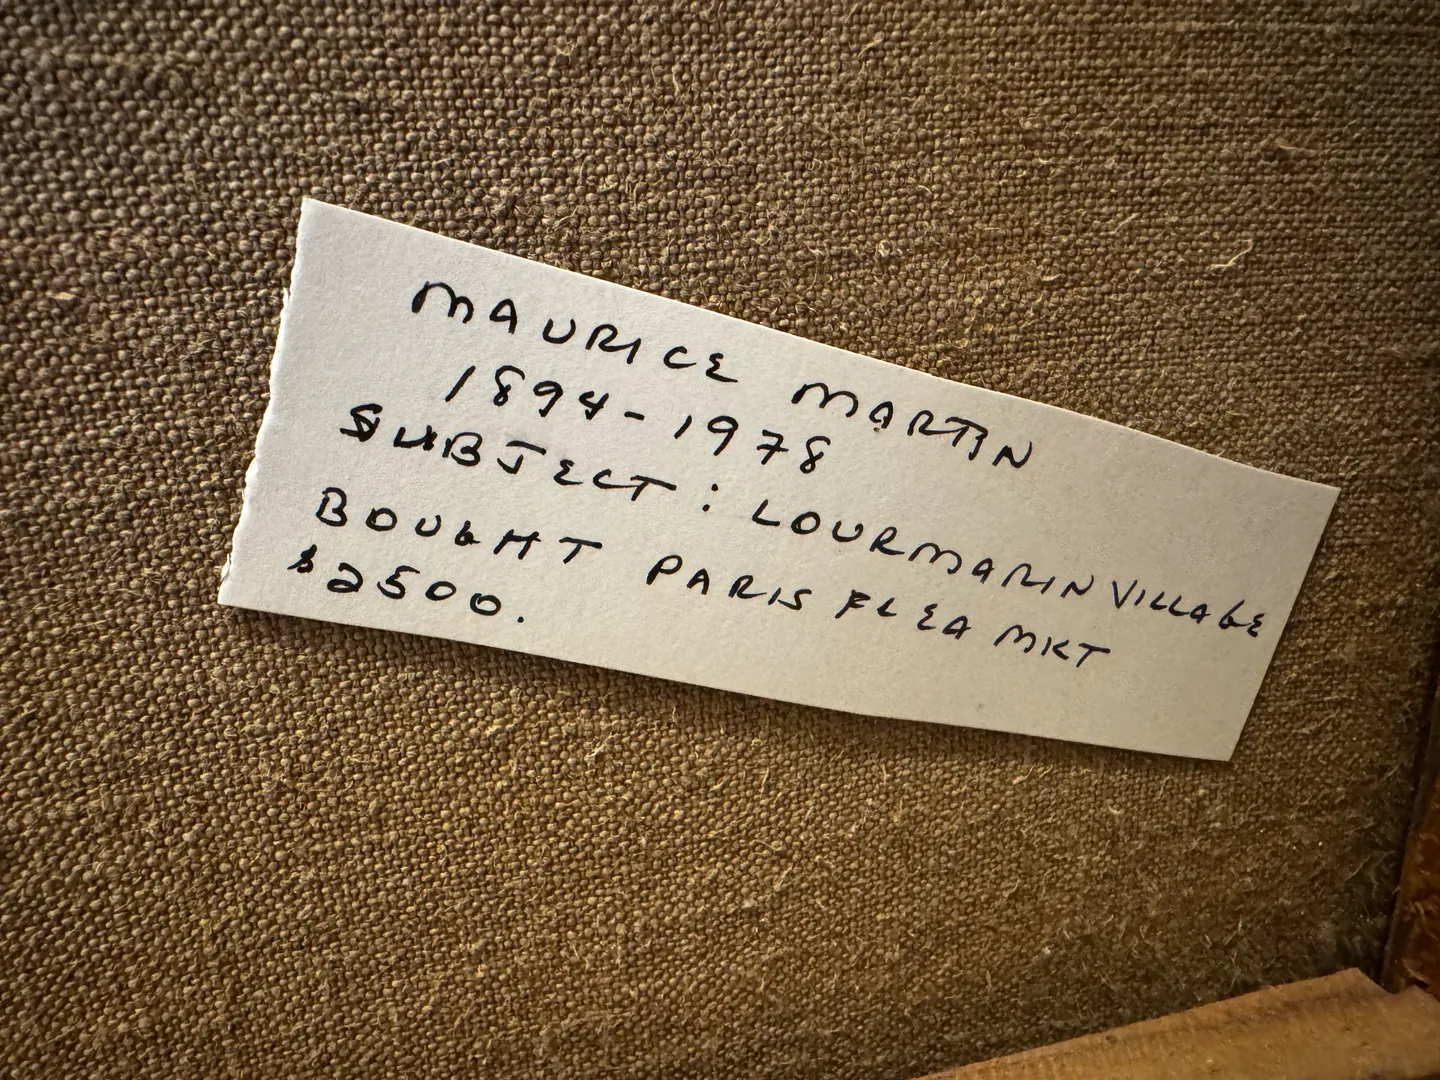 MAURICE MARTIN
1894-1978
SUBJECT: LOURMARIN VILLAGE
BOUGHT PARIS FLEA MKT
$2500.